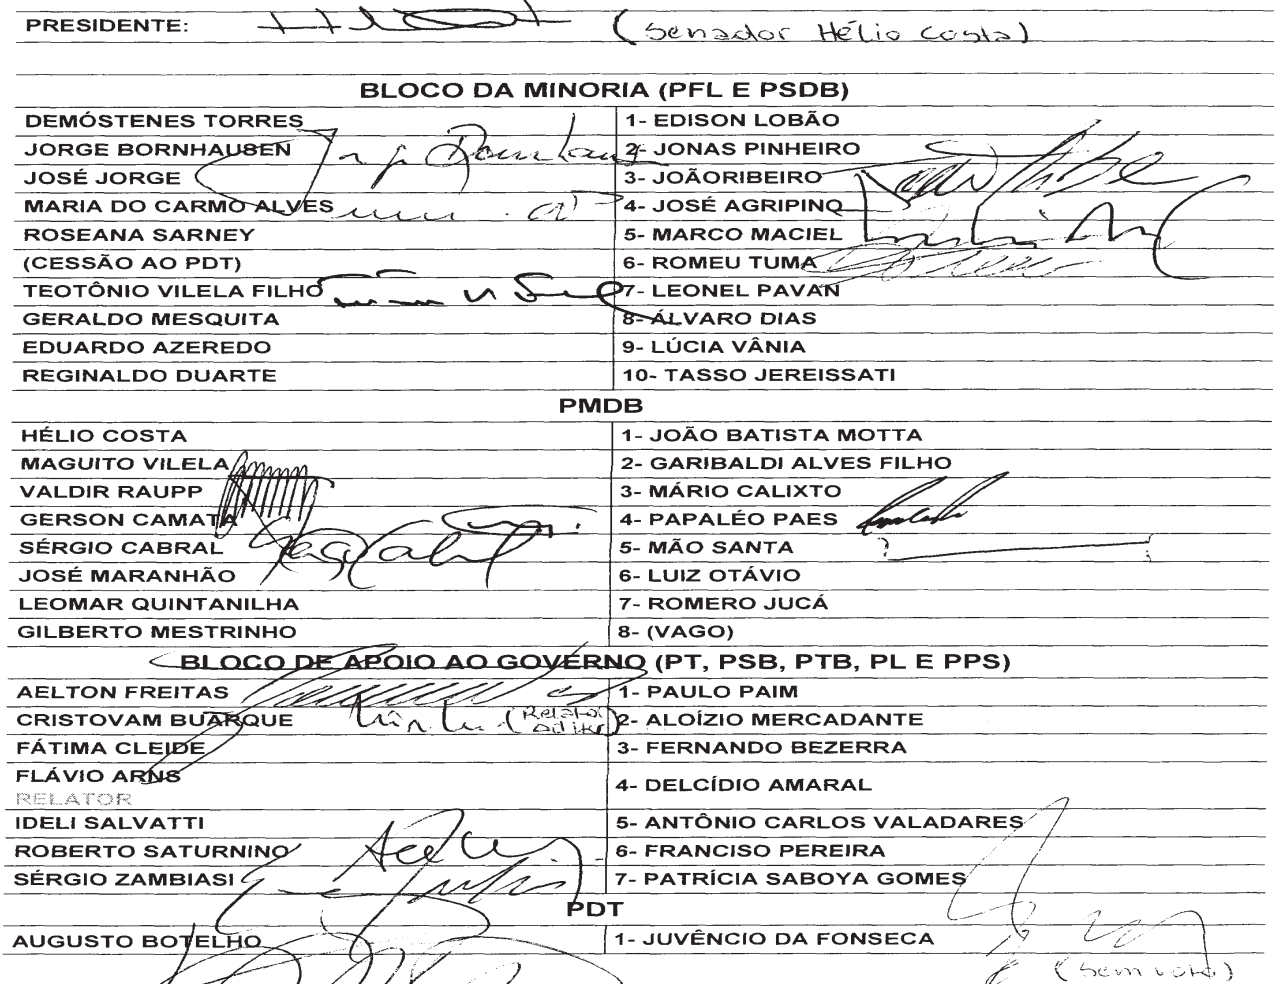 PRESIDENTE: (Senador Hélio Costa)
BLOCO DA MINORIA (PFL E PSDB)
DEMÓSTENES TORRES 1- EDISON LOBÃO
JORGE BORNHAUSEN 2- JONAS PINHEIRO
JOSÉ JORGE 3- JOÃORIBEIRO
MARIA DO CARMO ALVES 4- JOSÉ AGRIPINO
ROSEANA SARNEY 5- MARCO MACIEL
(CESSÃO AO PDT) 6- ROMEU TUMA
TEOTÔNIO VILELA FILHO 7- LEONEL PAVAN
GERALDO MESQUITA 8- ÁLVARO DIAS
EDUARDO AZEREDO 9- LÚCIA VÂNIA
REGINALDO DUARTE 10- TASSO JEREISSATI
PMDB
HÉLIO COSTA 1- JOÃO BATISTA MOTTA
MAGUITO VILELA 2- GARIBALDI ALVES FILHO
VALDIR RAUPP 3- MÁRIO CALIXTO
GERSON CAMATA 4- PAPALÉO PAES
SÉRGIO CABRAL 5- MÃO SANTA
JOSÉ MARANHÃO 6- LUIZ OTÁVIO
LEOMAR QUINTANILHA 7- ROMERO JUCÁ
GILBERTO MESTRINHO 8- (VAGO)
BLOCO DE APOIO AO GOVERNO (PT, PSB, PTB, PL E PPS)
AELTON FREITAS 1- PAULO PAIM
CRISTOVAM BUARQUE (Relator 2- ALOÍZIO MERCADANTE
FÁTIMA CLEIDE 3- FERNANDO BEZERRA
FLÁVIO ARNS
RELATOR 4- DELCÍDIO AMARAL
IDELI SALVATTI 5- ANTÔNIO CARLOS VALADARES
ROBERTO SATURNINO 6- FRANCISO PEREIRA
SÉRGIO ZAMBIASI 7- PATRÍCIA SABOYA GOMES
PDT
AUGUSTO BOTELHO 1- JUVÊNCIO DA FONSECA
(sem voto)